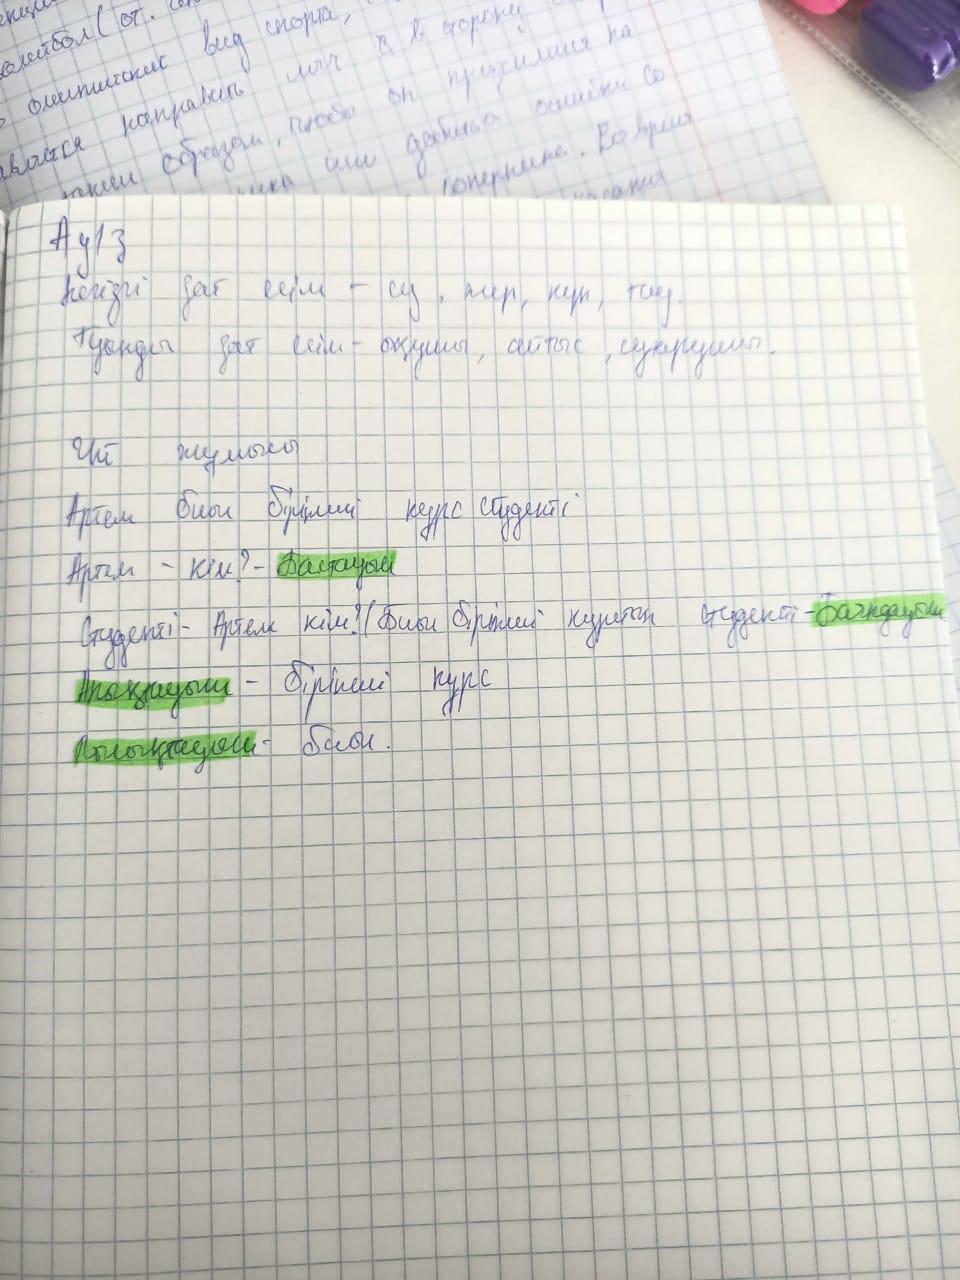 лейбол (от.
олимпийский вид спорта,
вается направить мяч в сторону
таким образом, чтобы он приземлился на
ника или добиться ошибки со
соперника. Во время
касания
Ау/з
Негізгі зат есім - су, жер, күн, тау.
Туынды зат есім - оқушы, айтыс, суарушы.
Үй жұмысы
Артем биыл бірінші курс студенті
Артем - кім? - Бастауыш
Студенті - Артем кім? (Биыл бірінші курстың студенті - Баяндауыш
Анықтауыш - бірінші курс
Пысықтауыш - биыл.